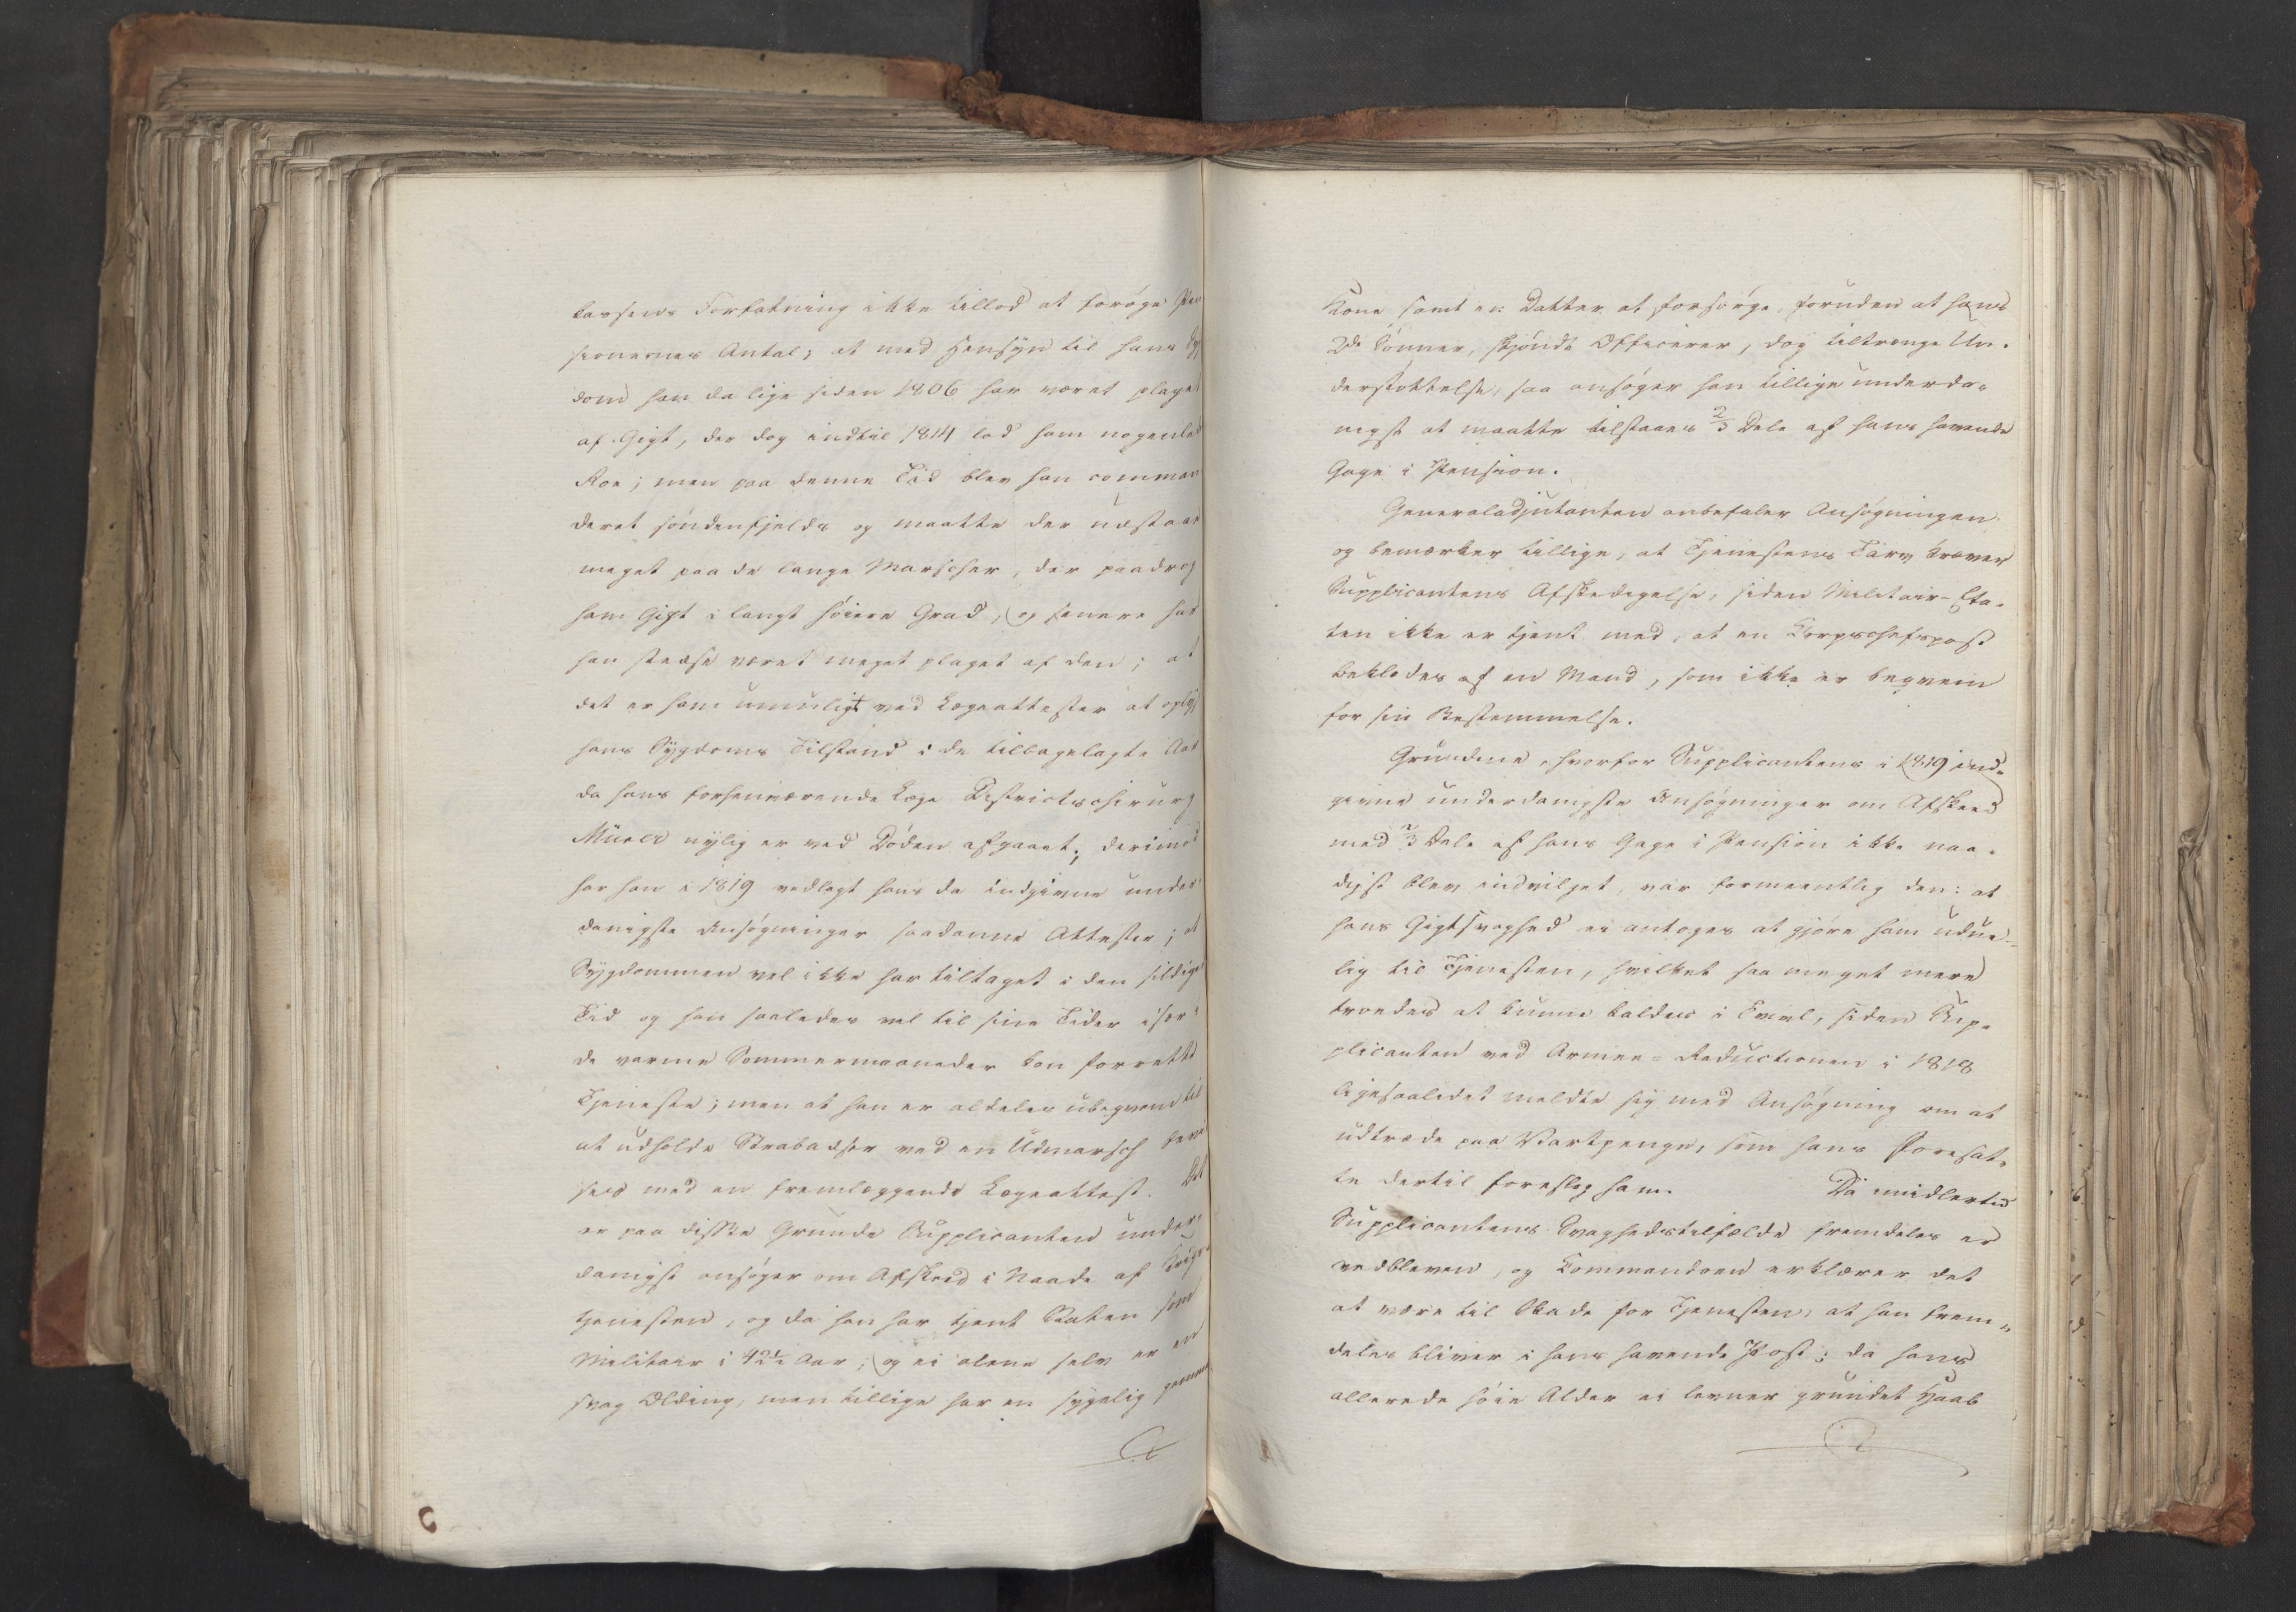 kassens Forfatning ikke tillod at forøge Pen
sionernes Antal; at med Hensyn til hans Syg
dom han da lige siden 1806 har været plaget
af Gigt, der dog indtil 1814 lod ham nogenled
Roe; men paa denne Tid blev han comman
deret søndenfjelds og maatte der udstaae
meget paa de lange Marscher, der paadrog
ham Gigt i langt høiere Grad, og senere har
han stedse været meget plaget af den; at
det er ham umuligt ved Lægeattester at oplys
hans Sygdoms Tilstand i de tilbagelagte Aar
da hans forhenværende Læge Districtschirurg
Mürer nylig er ved Døden afgaaet; derimod
har han i 1819 vedlagt hans da indgivne under
danigste Ansøgninger saadanne Attester; at
Sygdommen vel ikke har tiltaget i den sildige
Tid og han saaledes vel til sine Tider især i
de varme Sommermaaneder kan forrette
Tjeneste; men at han er aldeles ubeqvem til
at udholde Strabadser ved en Udmarsch bevi
ses med en fremlæggende Lægeattest. Det
er paa disse Grunde Supplicanten under
danigst ansøger om Afskeed i Naade af Krigs
tjenesten, og da han har tjent Staten som
Militair i 42½ Aar, og ei alene selv er en
svag Olding, men tillige har en sygelig gammel
C
Kone samt en Datter at forsørge, foruden at hans
2de Sønner, skjøndt Officerer, dog tiltrænge Un-
derstøttelse, saa ansøger han tillige underda-
nigst at maatte tilstaaes 2/3 Dele af hans havende
Gage i Pension.
Generaladjutanten anbefaler Ansøgningen
og bemærker tillige, at Tjenestens Tarv kræver
Supplicantens Afskedigelse, siden Militair-Eta-
ten ikke er tjent med, at en Corpschefspost
beklædes af en Mand, som ikke er beqvem
for sin Bestemmelse.
Grundene, hvorfor Supplicantens i 1819 ind-
givne underdanigste Ansøgninger om Afskeed
med 2/3 Dele af hans Gage i Pension ikke naa-
digst blev indvilget, var formeentlig den: at
hans Gigtsvaghed ei antoges at gjøre ham udue-
lig til Tjenesten, hvilket saa meget mere
troedes at kunne kaldes i Tvivl, siden Sup-
plicanten ved Armee-Reductionen i 1818
ligesaaledet meldte sig med Ansøgning om at
udtræde paa Vartpenge, som hans Foresat-
te dertil foreslog ham. Da imidlertid
Supplicantens Svaghedstilfælde fremdeles er
vedbleven, og Commandoen erklærer det
at være til Skade for Tjenesten, at han frem-
deles bliver i hans havende Post; da hans
allerede høie Alder ei levner grundet Haab